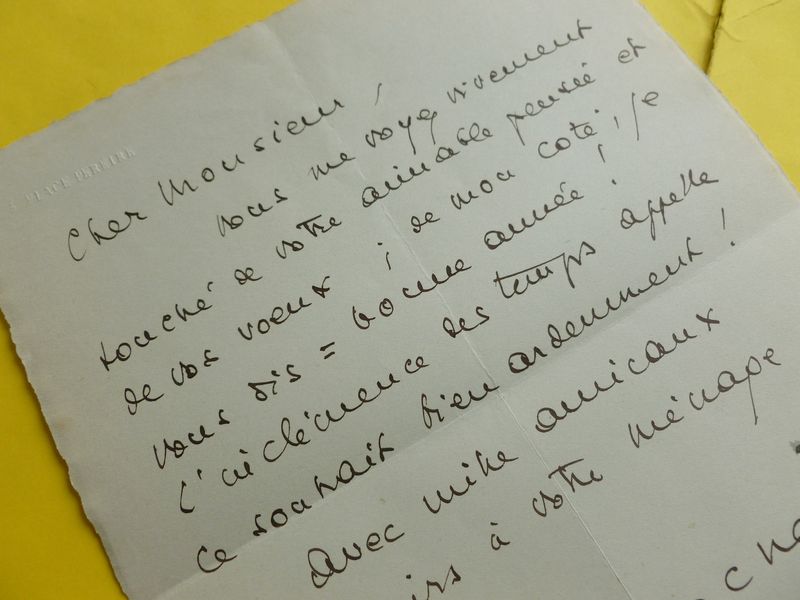 PLACE PEREIRE
Cher Monsieur,
vous me voyez vivement
touché de votre aimable pensée et
de vos voeux ; de mon coté, je
vous dis = bonne année !
l'inclémence des temps appelle
ce souhait bien ardemment !
avec mille amicaux
à votre ménage